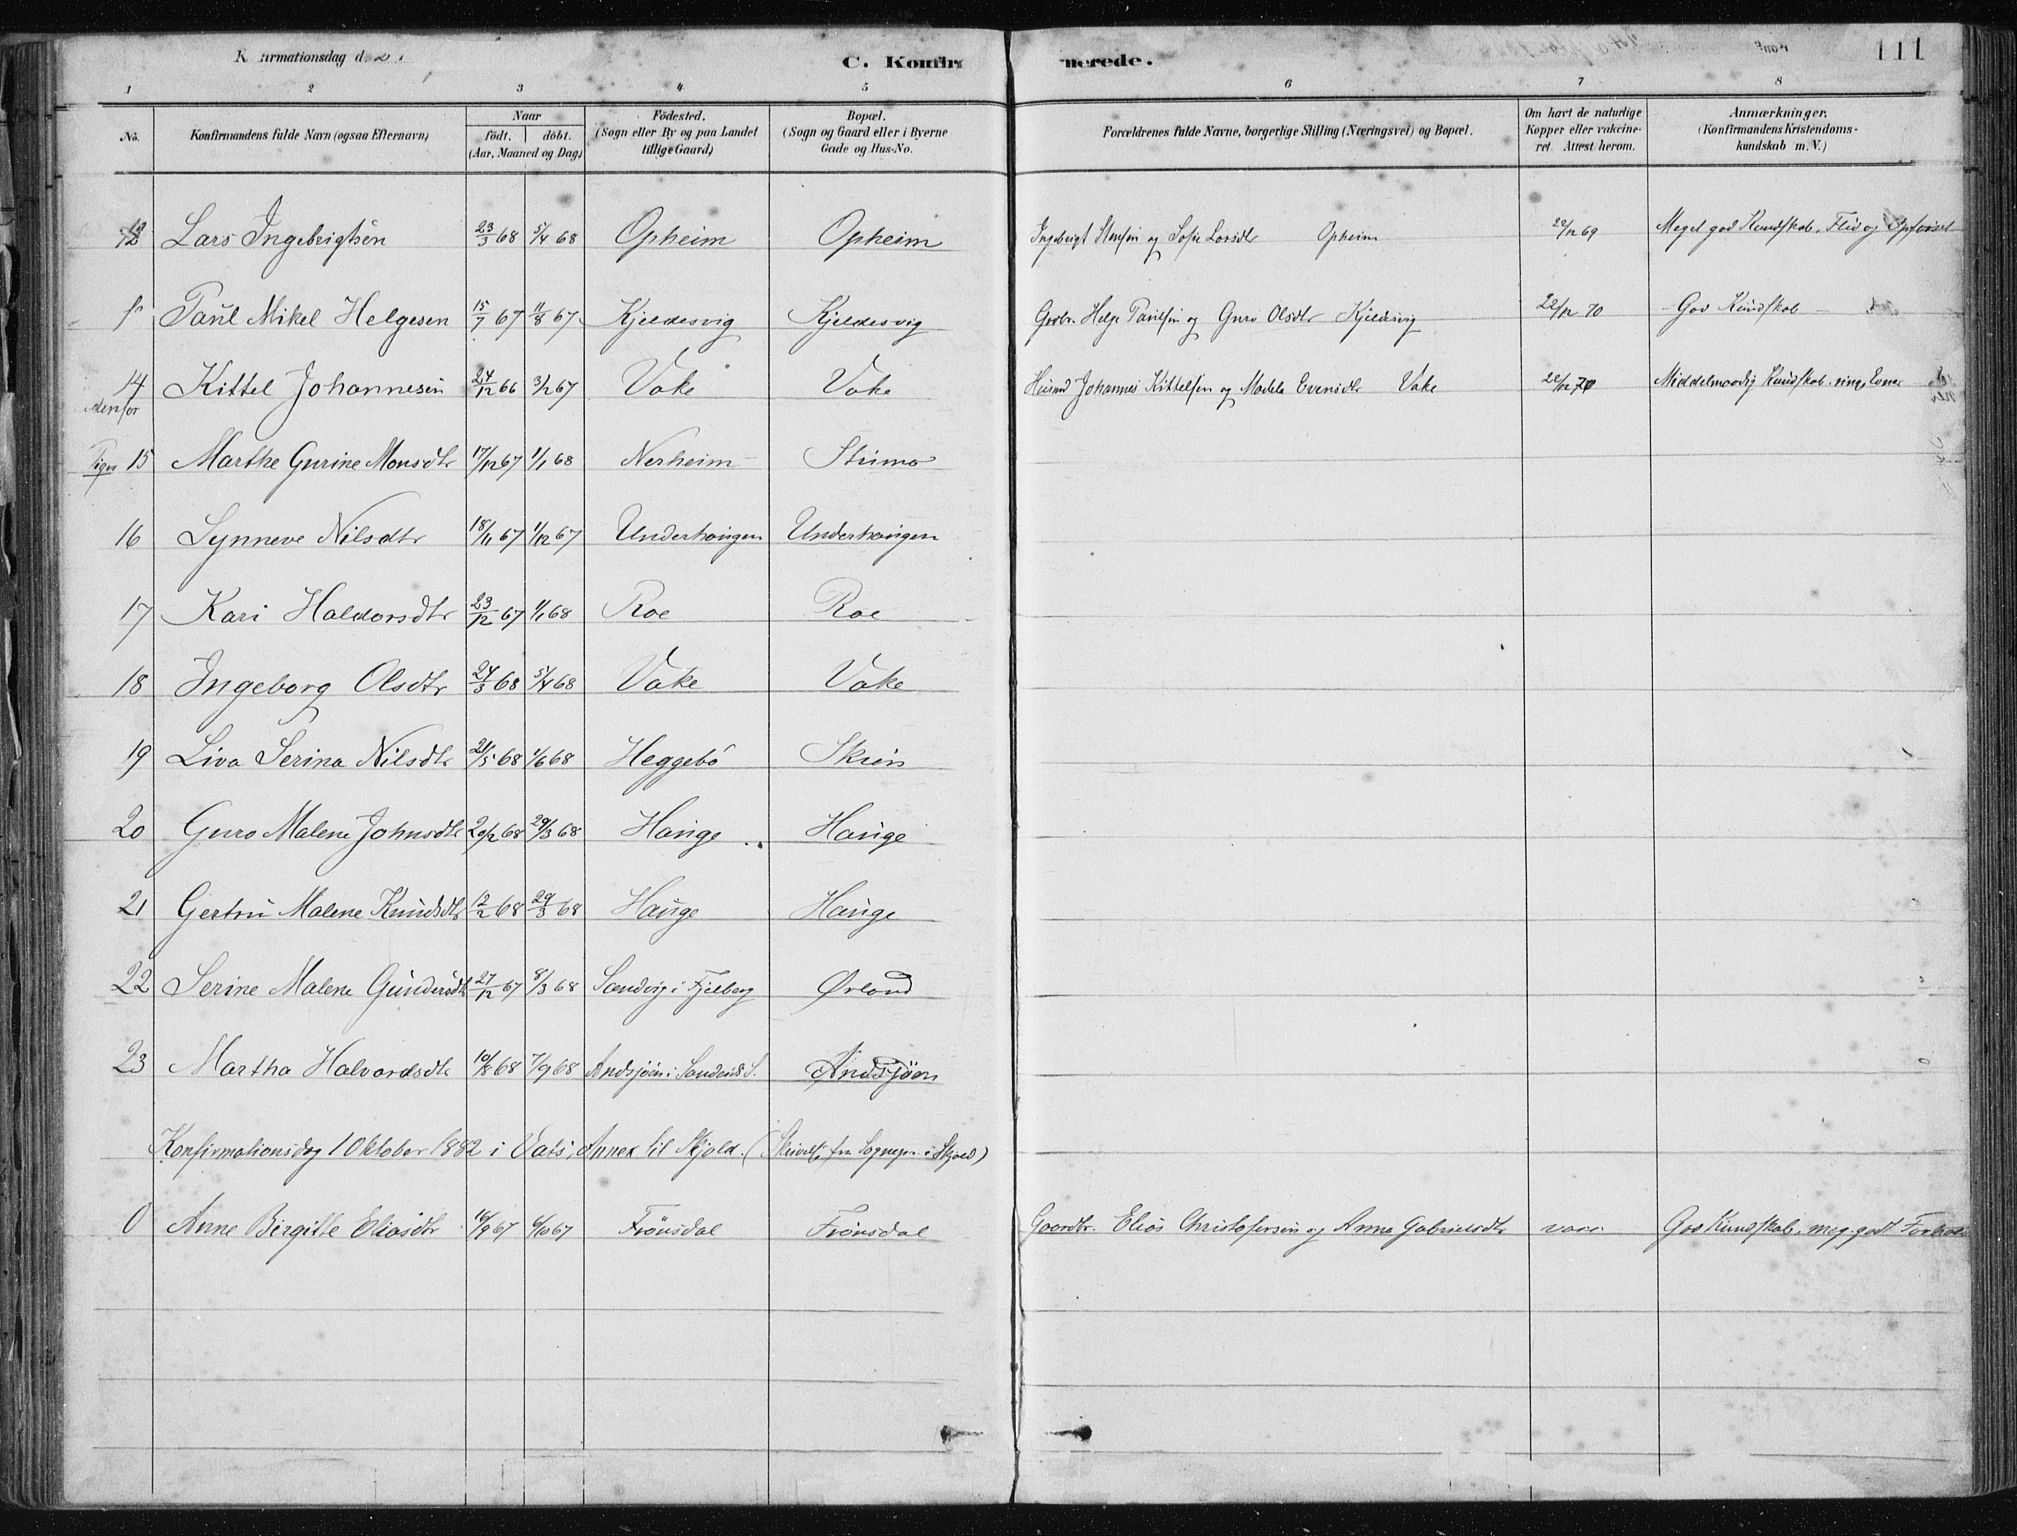 Konfirmationsdag d.
C. Konfirmerede.
111
1 2 3 4 5 6 7 8
No. Konfirmandens fulde Navn (ogsaa Efternavn) Naar födt. döbt. (Aar, Maaned og Dag) Födested. (Sogn eller By og paa Landet tillige Gaard) Bopæl. (Sogn og Gaard eller i Byerne Gade og Hus-No. Forældrenes fulde Navne, borgerlige Stilling (Næringsvei) og Bopæl. Om havt de naturlige Kopper eller vakcineret. Attest herom. Anmærkninger. (Konfirmandens Kristendomskundskab m. V.)
12 Lars Ingebrigtsen 23/3 68 5/4 68 Opheim Opheim Ingebrigt Stensen og Sofie Larsdtr Opheim 22/12 69 Meget god Kundskab, Flid og
Paul Mikel Helgesen 15/7 67 11/8 67 Kjeldesvig Kjeldesvig Grdbr. Helge Paulsen og Guro Olsdtr Kjeldesvig 22/12 70 God Kundskab
14 Kittel Johannesen 24/12 66 3/2 67 Vake Vake Husmd Johannes Kittelsen og Madela Evensdtr Vake 22/12 70 Middelmaadig Kundskab, ringe Evner
Piger 15 Marthe Gurine Monsdtr 17/12 67 1/1 68 Nerheim Stumo
16 Synneve Nilsdtr 18/11 67 1/12 67 Underhaugen Underhaugen
17 Kari Haldorsdtr 23/12 67 1/1 68 Roe Roe
18 Ingeborg Olsdtr 24/3 68 5/4 68 Vake Vake
19 Liva Serina Nilsdtr 21/5 68 1/6 68 Heggebö Skien
20 Guro Malene Johnsdtr 20/2 68 29/3 68 Hauge Hauge
21 Gertru Malene Knudsdtr 12/2 68 29/3 68 Hauge Hauge
22 Serine Malene Gundersdtr 27/12 67 8/3 68 Sandvig i Fjelberg Ørland
23 Martha Halvardsdtr 10/8 68 7/9 68 Andsjöen i Sandeids S. Andsjöen
Konfirmationsdag 1 Oktober 1882 i Vats, Annex til Skjold. ( fra Sognepr. i Skjold)
0 Anne Birgitte Eliasdtr 16/9 67 6/10 67 Frönsdal Frönsdal Gaardbr. Elias Christofersen og Anna Gabrielsdtr vacc. God Kundskab, meg. godt Forhold